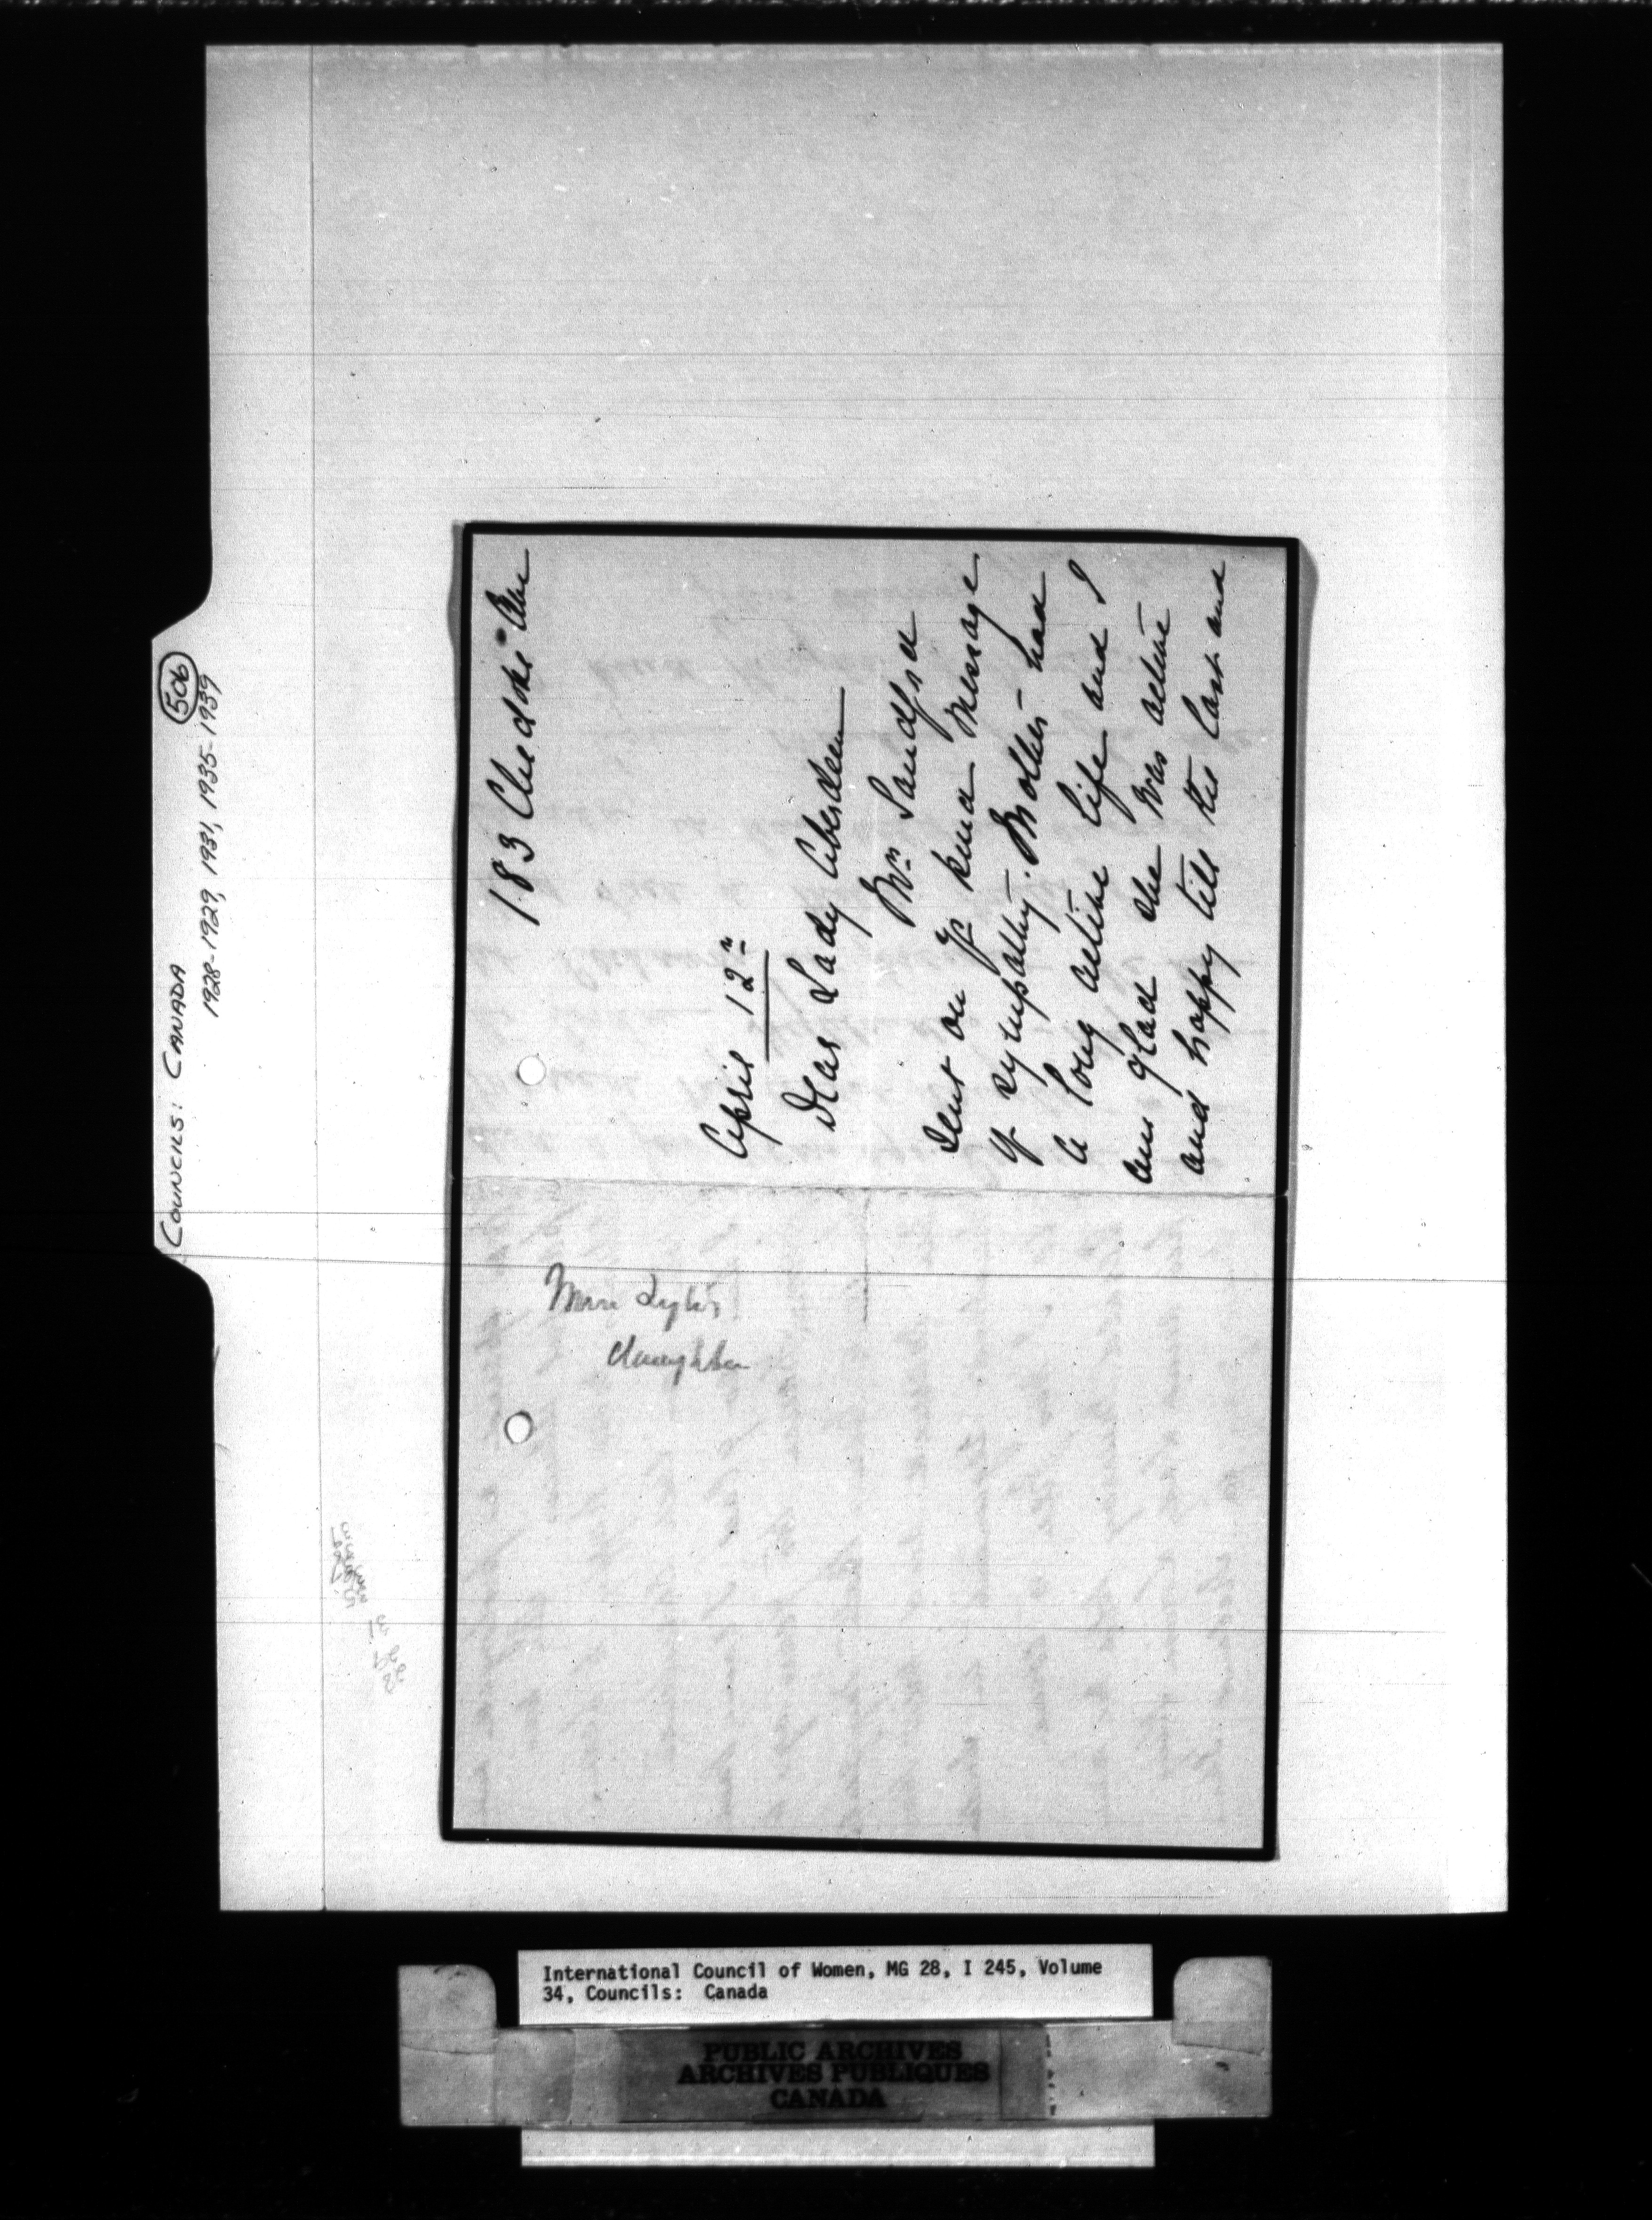 COUNCILS: CANADA
506
1928-1929, 1931, 1935-1939
183
April 12th
Dear Lady Aberdeen
Mrs Sandford
sent on yr kind message
of sympathy. Mother had
a long active life and I
am glad she was active
and happy till the last and
daughter
International Council of Women, MG 28, I 245, Volume
34, Councils: Canada
PUBLIC ARCHIVES
ARCHIVES PUBLIQUES
CANADA